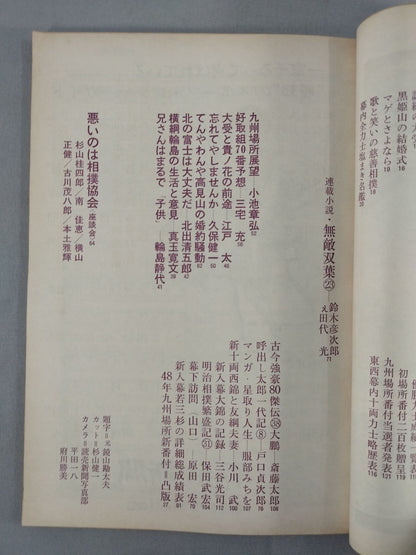 黒姫山の結婚式 16
マゲとさよなら 19
歌と笑いの慈善相撲 18
幕内全力士塩まき名鑑 20
初場所番付二百枚贈呈
九州場所番付当選者発表
東西幕内十両力士略歴表
連載小説・無敵双葉㉓ 鈴木彦次郎
え田代 光 72
九州場所展望―小池章弘 52
好取組70番予想―三宅 充 60
大受と貴ノ花の前途―江戸 太 46
忘れてやしませんか―久保健一 50
てんやわんや高見山の婚約騒動 62
北の富士は大丈夫だ―北出清五郎 42
横綱輪島の生活と意見 真玉寛文
兄さんはまるで「子供」―輪島静代 41
悪いのは相撲協会〈座談会〉 64
杉山桂四郎/南 佳恵/横山
正健/古川茂八郎/本土雅輝
古今強豪80傑伝㊳大鵬 斎藤太郎 108
呼出し太郎一代記⑧戸口貞次郎
マンガ・星取り人生 服部みちを
新十両西錦と友綱夫妻 小川 武 100
新入幕大錦の記録 三谷光司 112
明治相撲繁盛記㉛ 保田武宏 104
幕下訪問(山口) 原田 宏 70
新入幕若三杉の詳細総成績表
48年九州場所新番付=凸版 97
題字=元鏡山勘太夫
カット=杉山健一
カメラ=読売新聞写真部
平田一八
府川勝美